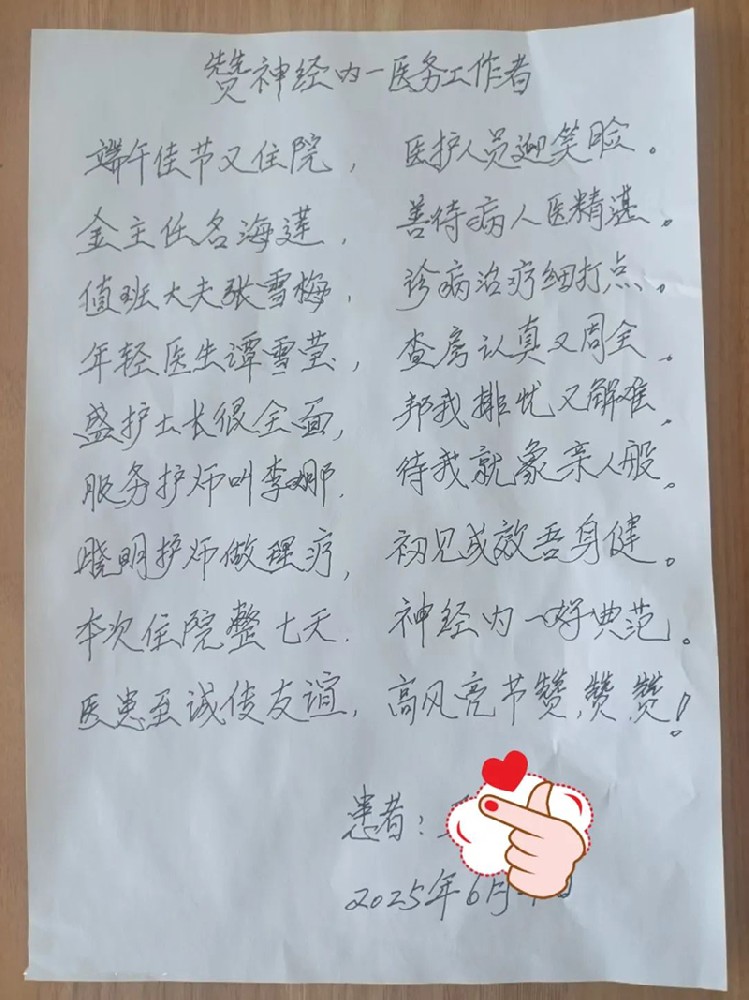 赞神经内一医务工作者
端午佳节又住院， 医护人员迎笑脸。
金主任名海莲， 善待病人医精湛。
值班大夫张雪梅， 诊病治疗细打点。
年轻医生谭雪莹， 查房认真又周全。
盛护士长很全面， 帮我排忧又解难。
服务护师叫李娜， 待我就象亲人般。
晓明护师做理疗， 初见成效吾身健。
本次住院整七天. 神经内一好典范。
医患至诚传友谊， 高风亮节赞，赞，赞！
患者：
2025年6月